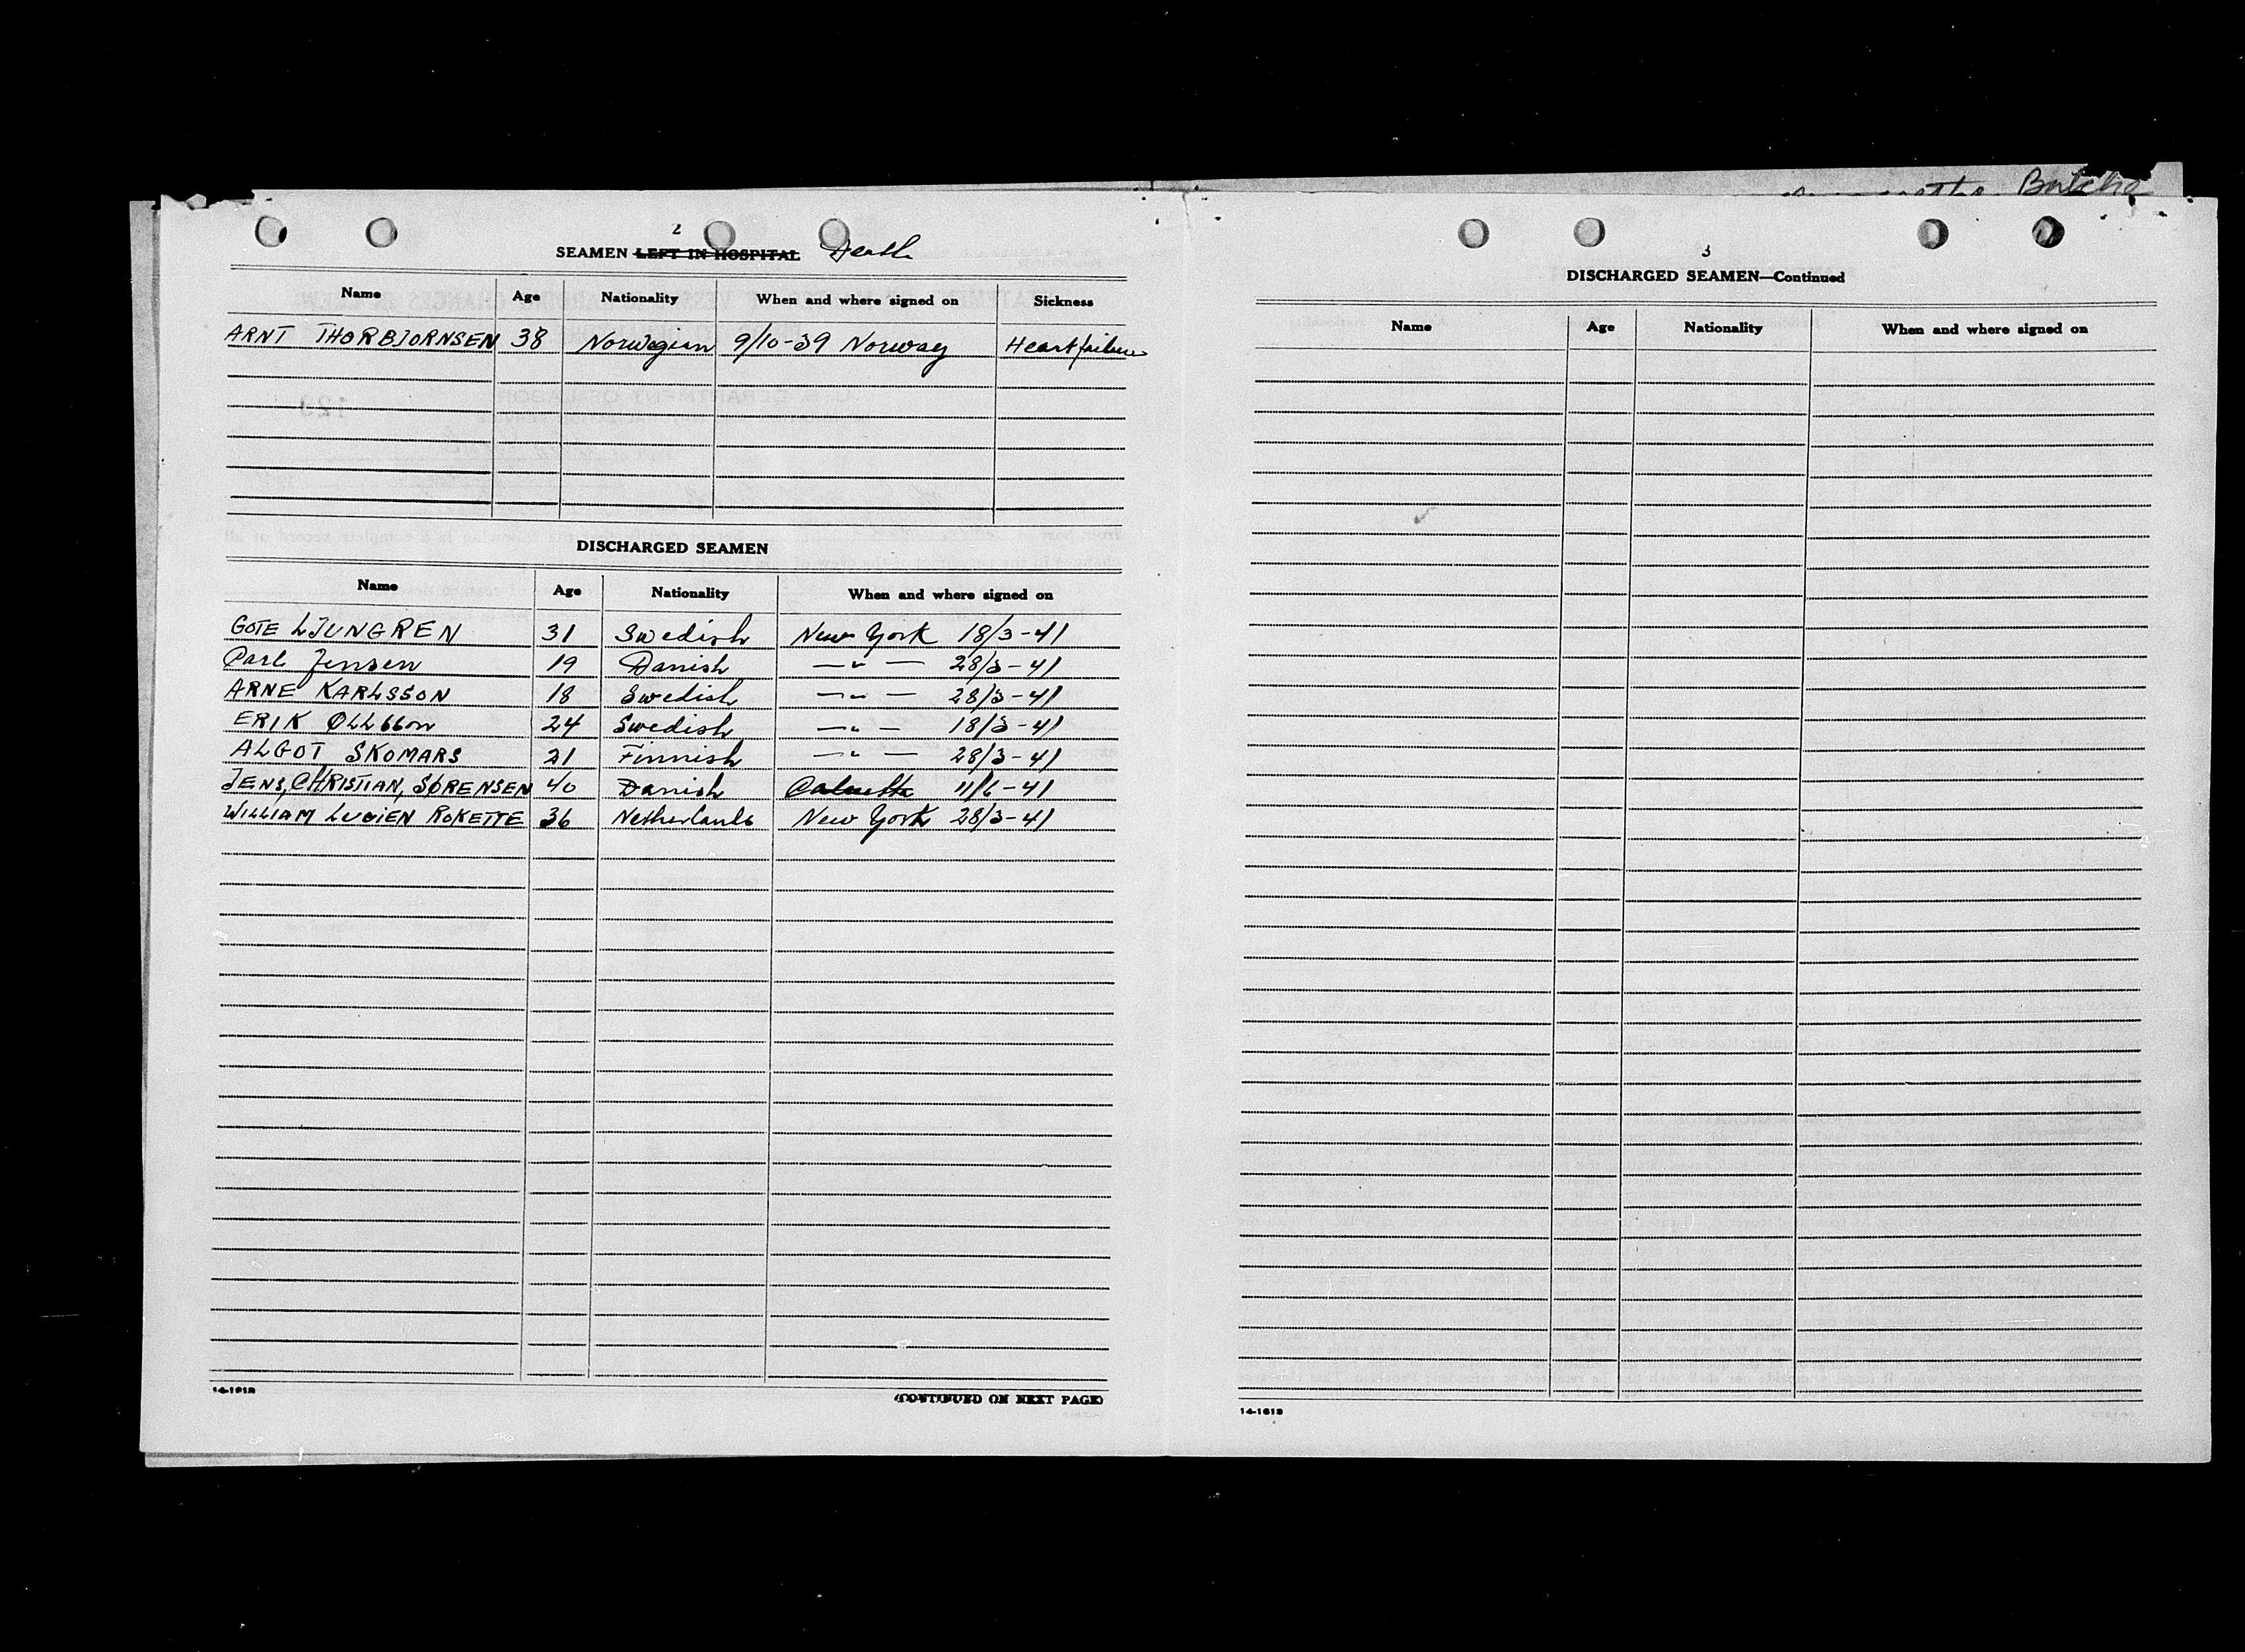 Butche
2
SEAMEN LEFT IN HOSPITAL Death
Name Age Nationality When and where signed on Sickness
ARNT THORBJORNSEN 38 Norwegian 9/10-39 Norway Heart failure
DISCHARGED SEAMEN
Name Age Nationality When and where signed on
GOTE LJUNGREN 31 Swedish New York 18/3-41
Carl Jensen 19 Danish — " — 28/3-41
ARNE KARLSSON 18 Swedish — " — 28/3-41
ERIK OLLSSON 24 Swedish — " — 18/3-41
ALGOT SKOMARS 21 Finnish — " — 28/3-41
JENS, CHRISTIAN, SØRENSEN 40 Danish Calcutta 11/6-41
WILLIAM LUCIEN ROKETTE 36 Netherlands New York 28/3-41
14-1613
(CONTINUED ON NEXT PAGE)
3
DISCHARGED SEAMEN—Continued
Name Age Nationality When and where signed on
14-1613